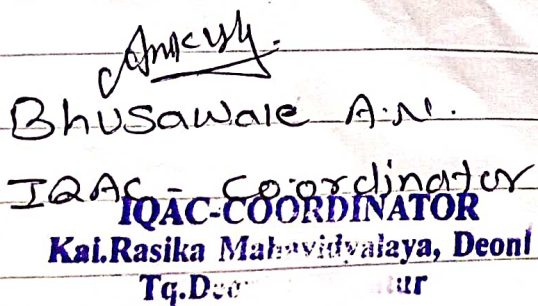 Bhusawale A.N.
IQAC - Co-ordinator
IQAC-COORDINATOR
Kai.Rasika Mahavidyalaya, Deoni